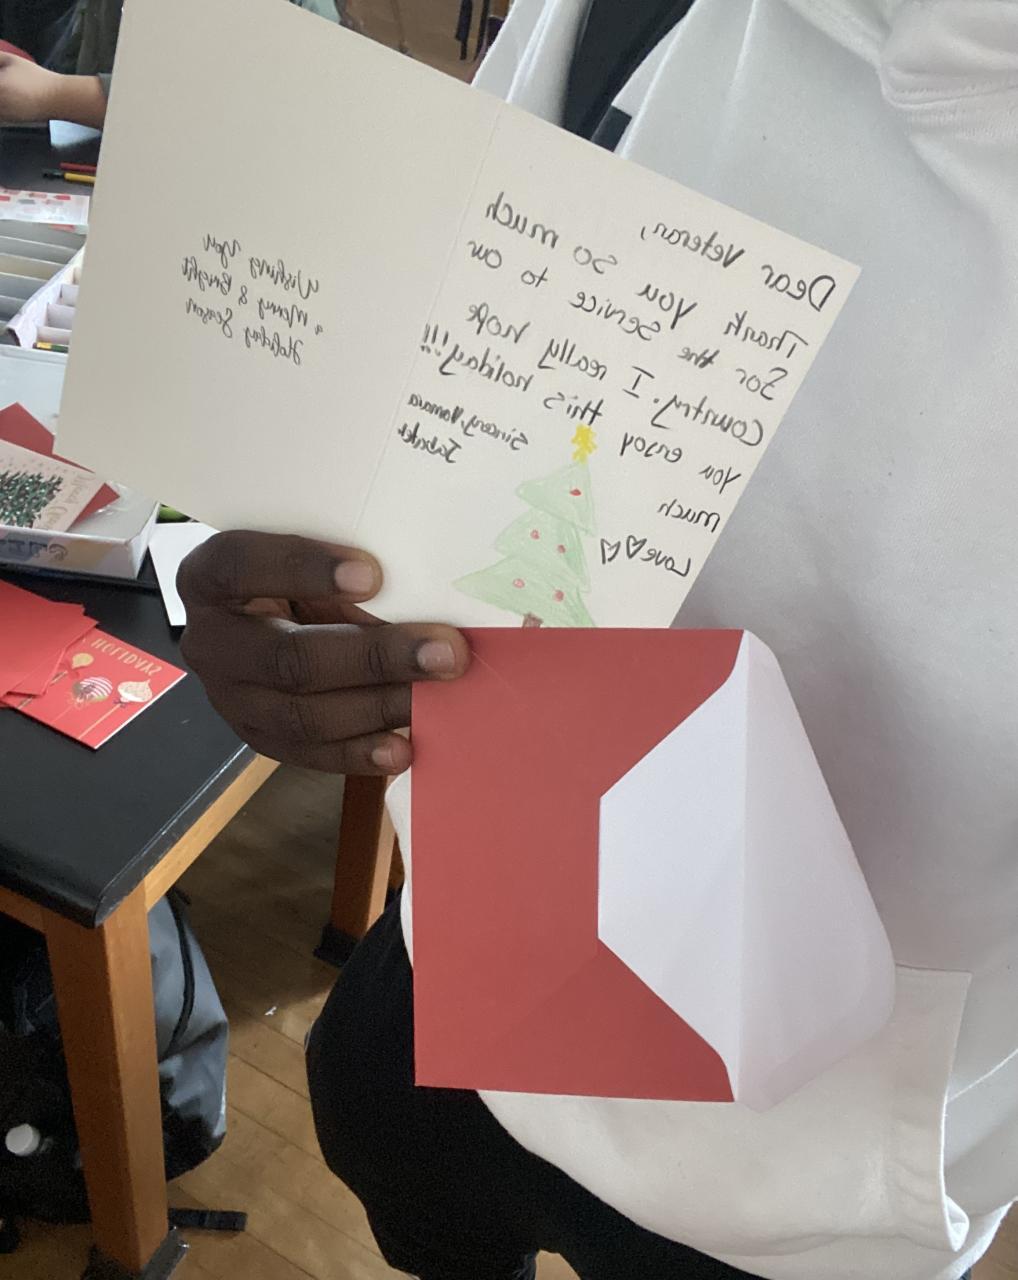 Wishing you
a Merry & Bright
Holiday Season
Dear Veteran,
Thank you so much
for the service to our
Country. I really hope
you enjoy this holiday!!!
much
Love
HOLIDAYS